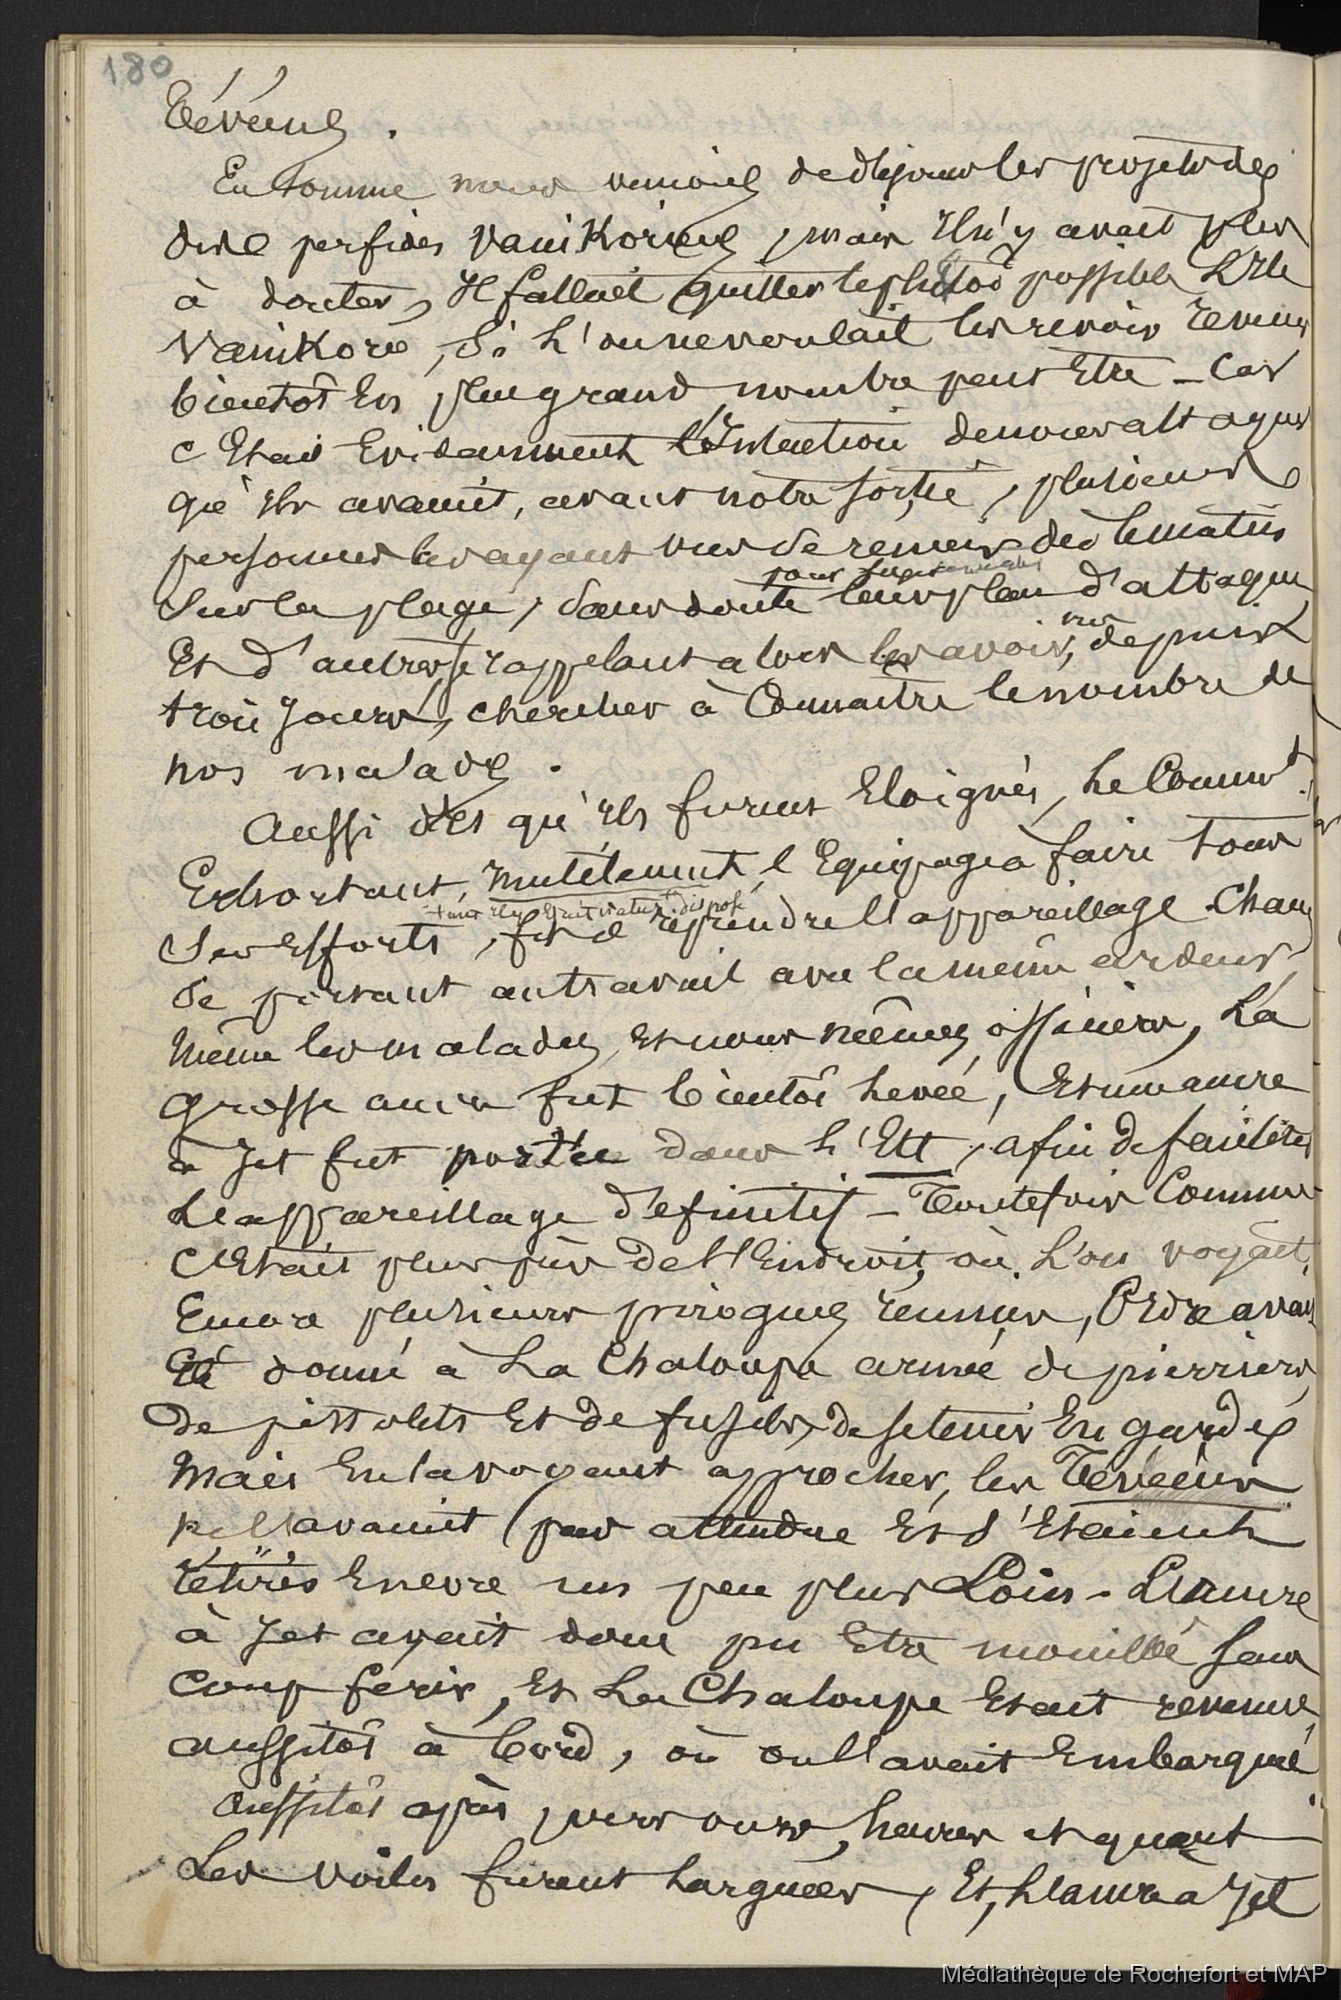 180
Tévéens.
En somme nous venions de déjouer les projets des
dits perfides Vanikoriens, mais Il n'y avait plus
à douter, Il fallait quitter le plutôt possible L'Ile
Vanikoro, Si L'on ne voulait les revoir revenir
bientôt En plus grand nombre peut Etre – Car
c Etait Evidamment L'Intention de nous attaquer
qu'Ils avaient, avant notre sortie, plusieurs
personnes les ayant vus se reunir dès le matin
Sur la plage, Sans doute leur plan d'attaque
pour
Et d'autres se rappelant alors les avoir, depuis
vus
trois Jours, chercher à Connaitre le nombre de
nos malades.
Aussi dès qu'Ils furent Eloignés, Le Commt.
Exhortant, Inutilement, l'Equipage à faire tous
disposé
Ses Efforts, fit reprendre L'appareillage. Chacun
Se portant au travail avec la même ardeur,
même les malades, Et nous mêmes officiers, La
grosse ancre fut bientôt Levée, Et une ancre
à Jet fut portée dans L'Ett, afin de faciliter
Le appareillage définitif – Toutefois Comme
c'Etait plus près de L'Endroit, où L'on voyait,
Encore plusieurs pirogues réunies, Ordre avait
Eté donné à La Chaloupe armée de pierriers,
de pistolets Et de fusils, de se tenir En garde,
Mais En la voyant approcher, les Tévéens
ne L'avaient pas attendue Et S'Etaient
retirés Encore un peu plus Loin. L'ancre
à Jet avait donc pu Etre mouillée sans
coup ferir, Et La Chaloupe Etait revenue
aussitôt à bord, où on L'avait Embarquée
Aussitôt après, vers onze heures et quart
Les voiles furent Larguées, Et, L'ancre à Jet
Médiathèque de Rochefort et MAP